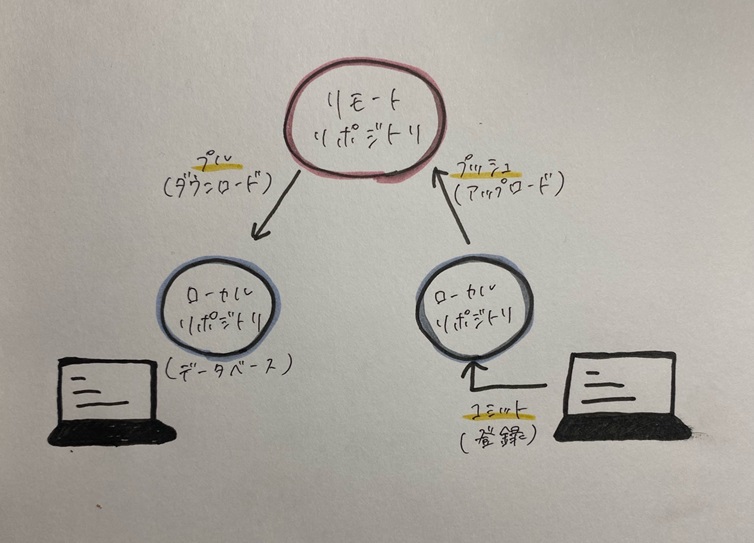 リモート
リポジトリ
プル
(ダウンロード)
プッシュ
(アップロード)
ローカル
リポジトリ
(データベース)
ローカル
リポジトリ
コミット
(登録)